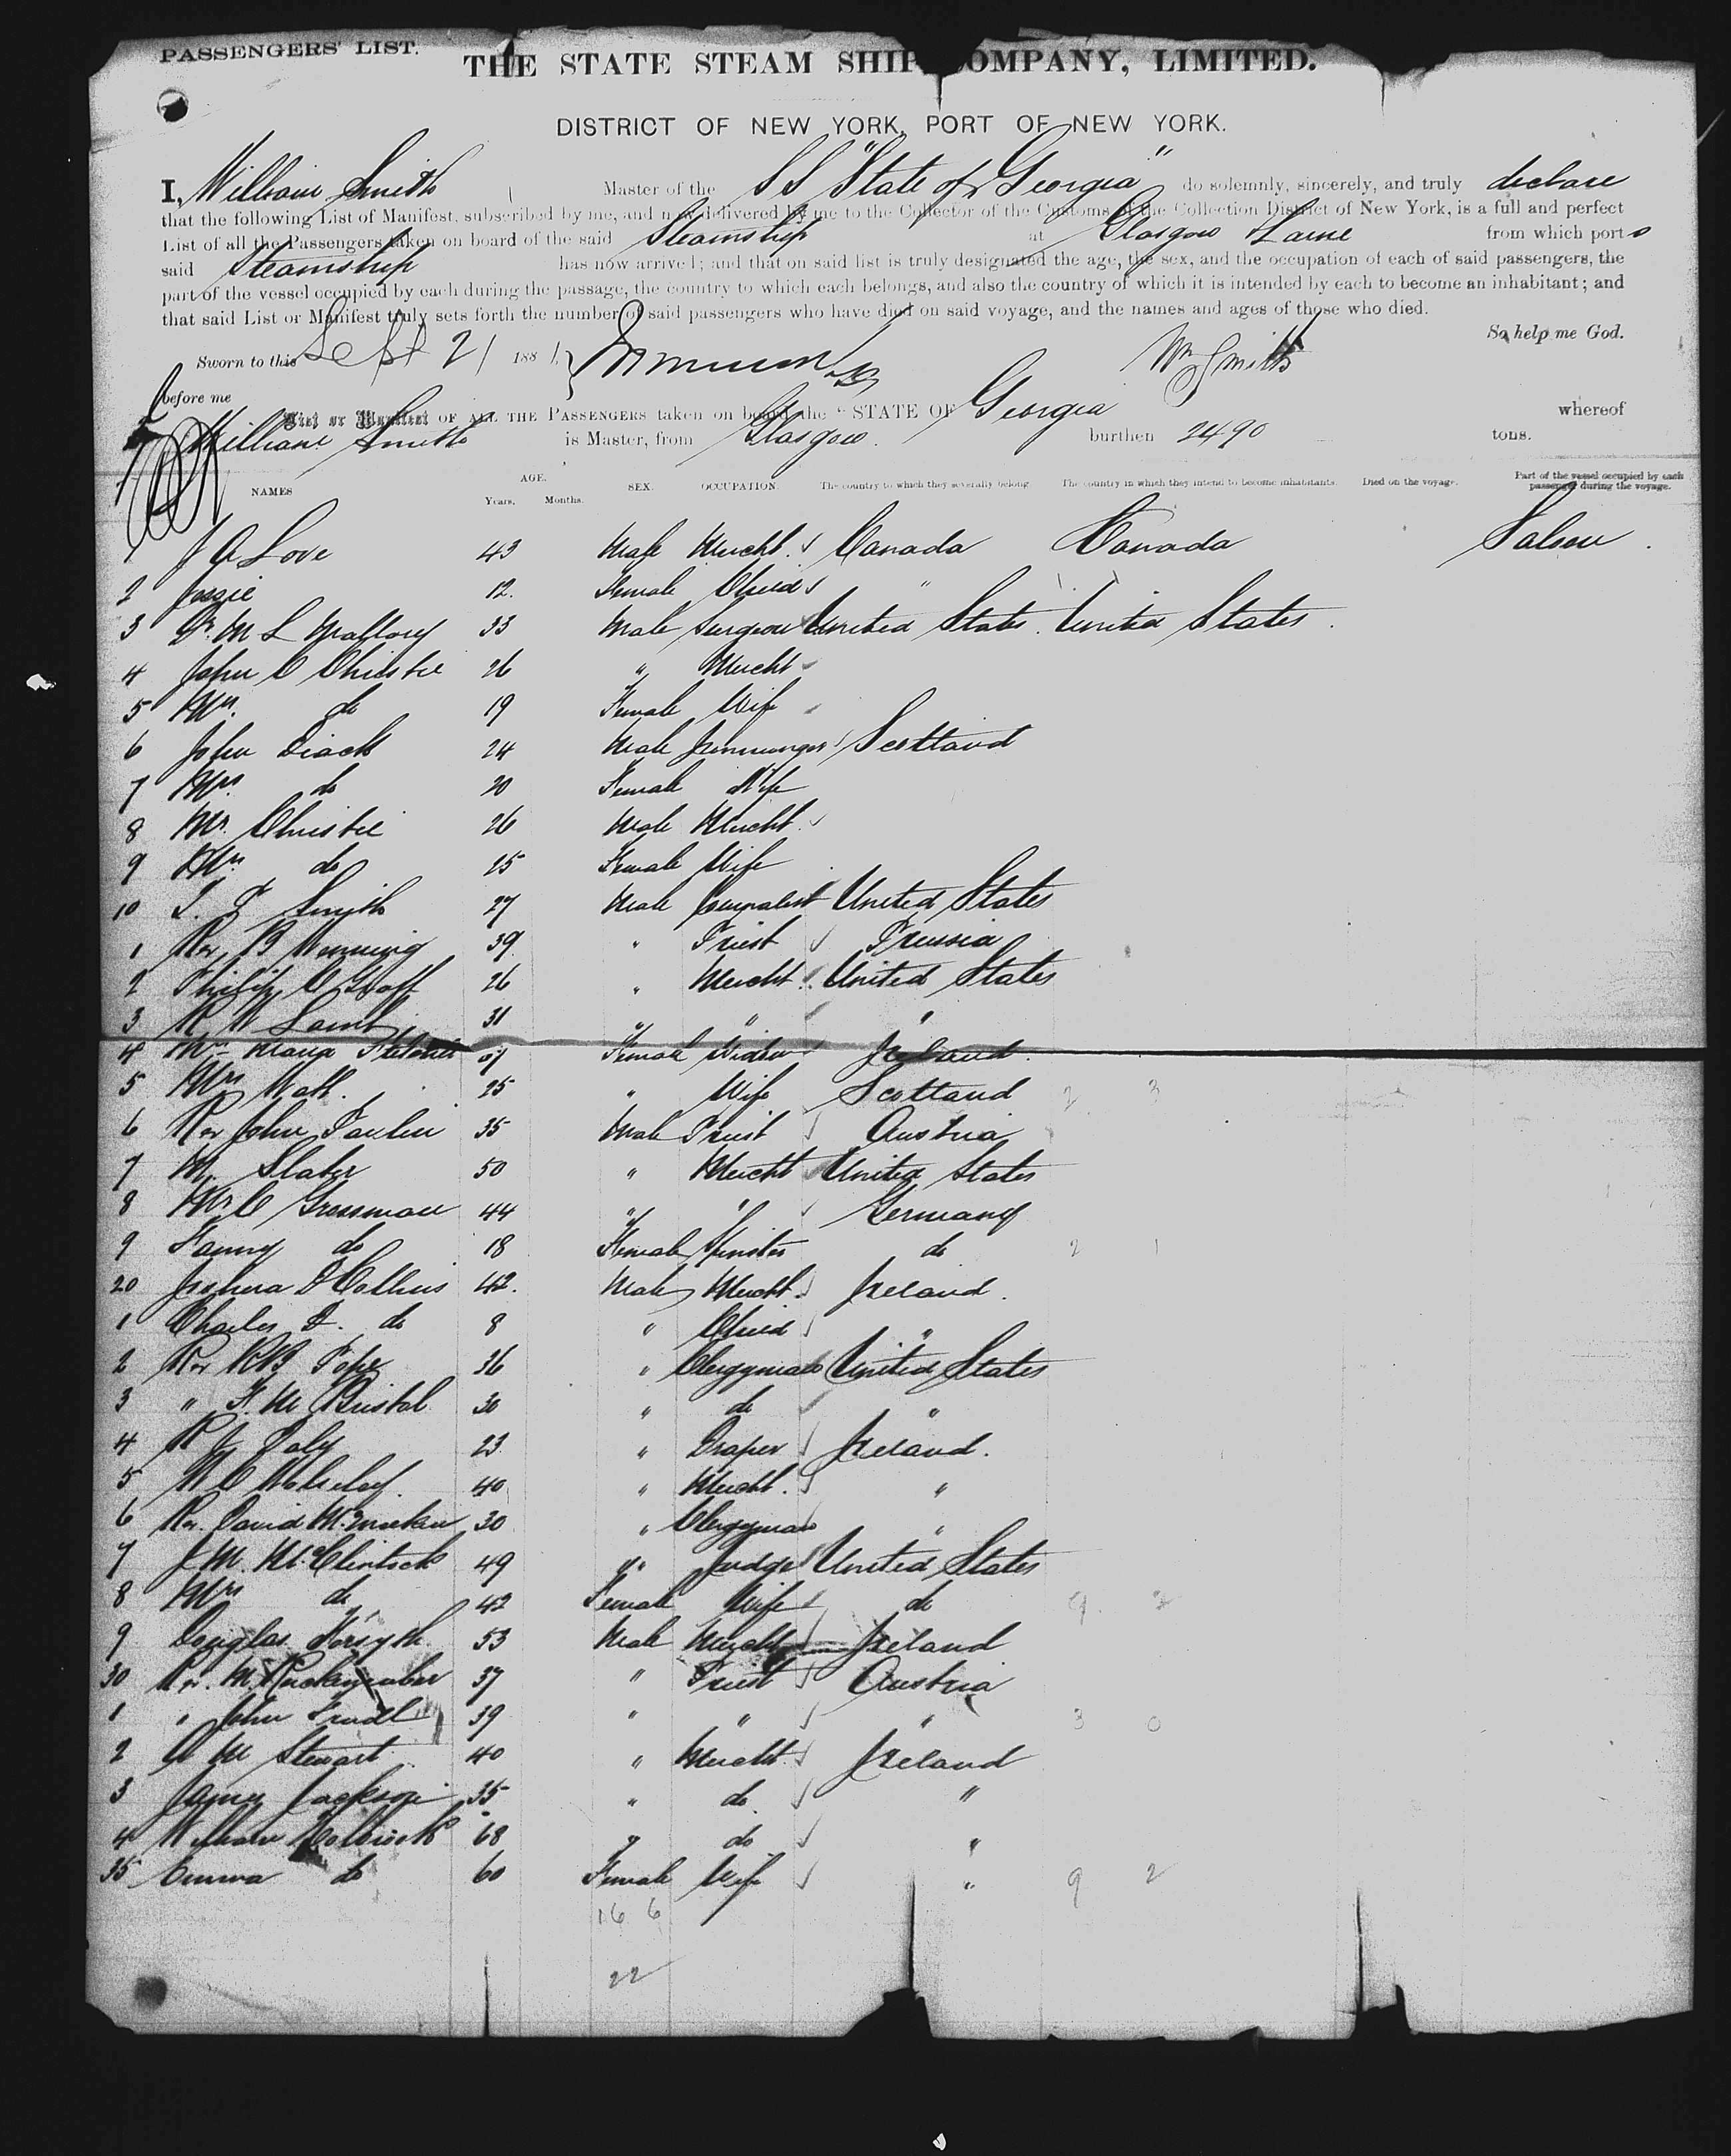 PASSENGERS' LIST.
THE STATE STEAM SHIP COMPANY, LIMITED.
DISTRICT OF NEW YORK, PORT OF NEW YORK.
I, William Smith Master of the SS "State of Georgia" do solemnly, sincerely, and truly declare
that the following List of Manifest, subscribed by me, and now delivered by me to the Collector of the Customs of the Collection District of New York, is a full and perfect
List of all the Passengers taken on board of the said Steamship at Glasgow & Larne from which ports
said Steamship has now arrived; and that on said list is truly designated the age, the sex, and the occupation of each of said passengers, the
part of the vessel occupied by each during the passage, the country to which each belongs, and also the country of which it is intended by each to become an inhabitant; and
that said List or Manifest truly sets forth the number of said passengers who have died on said voyage, and the names and ages of those who died.
So help me God.
Sworn to this Sept 21 1881 Wm Smith
before me
List or Manifest OF ALL THE PASSENGERS taken on board the "STATE OF Georgia whereof
William Smith is Master, from Glasgow. burthen 2490 tons.
NAMES AGE. Years, Months. SEX. OCCUPATION. The country to which they severally belong. The country in which they intend to become inhabitants. Died on the voyage. Part of the vessel occupied by each passenger during the voyage.
1 J A Love 43 Male Mercht. Canada Canada Saloon
2 Jessie 12. Female Child "
3 Dr. M L Mallory 33 Male Surgeon United States. United States.
4 John C Christie 26 " Mercht
5 Mrs. do 19 Female Wife
6 John Diack 24 Male Ironmonger Scotland
7 Mrs. do 20 Female Wife
8 Mr. Christie 26 Male Mercht.
9 Mrs. do 25 Female Wife
10 Smith 27 Male Journalist United States
1 Rev. B Wenning 39 " Priest Prussia
2 Philip C Graff 26 " Mercht. United States
3 R W Lamb 31 " " "
4 Mrs Maria Female Widow Ireland.
5 Mrs Watt. 25 " Wife Scotland 2 3
6 Rev John Paulin 35 Male Priest Austria
7 M. Slater 50 " Mercht United States
8 Mr C Grossman 44 " " Germany
9 Fanny do 18 Female Spinster do 2 1
20 Joshua D Collins 42. Male Mercht. Ireland.
1 Charles D. do 8 " Child "
2 Rev RB Pope 36 " Clergyman United States
3 " F. M Bristol 30 " do "
4 R J Daly 23 " Draper Ireland.
5 W C 40 " Mercht. "
6 Rev. David 30 " Clergyman "
7 J. M. McClintock 49 " Judge United States
8 Mrs do 42 Female Wife do 9 2
9 Douglas Forsyth 53 Male Mercht Ireland
30 Rev. M. 37 " Priest Austria
1 " John 39 " " " 3 0
2 M Stewart 40 " Mercht. Ireland
3 James Jackson 35 " do "
4 William Holbrook 68 " do "
35 Emma do 60 Female Wife " 9 2
16 6
22